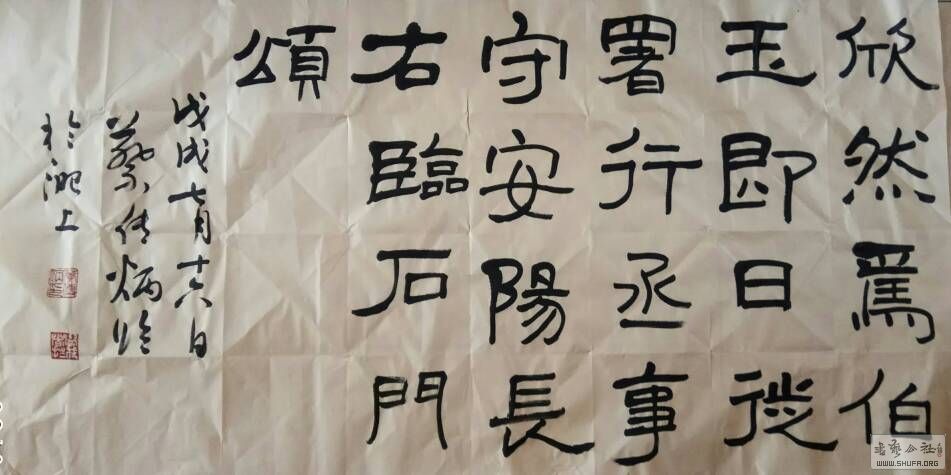 欣然焉伯
玉即日徙
署行丞事
守安陽長
右臨石門
頌
戊戌七月十六日
蔡传炳临
於上
书艺公社
WWW.SHUFA.ORG